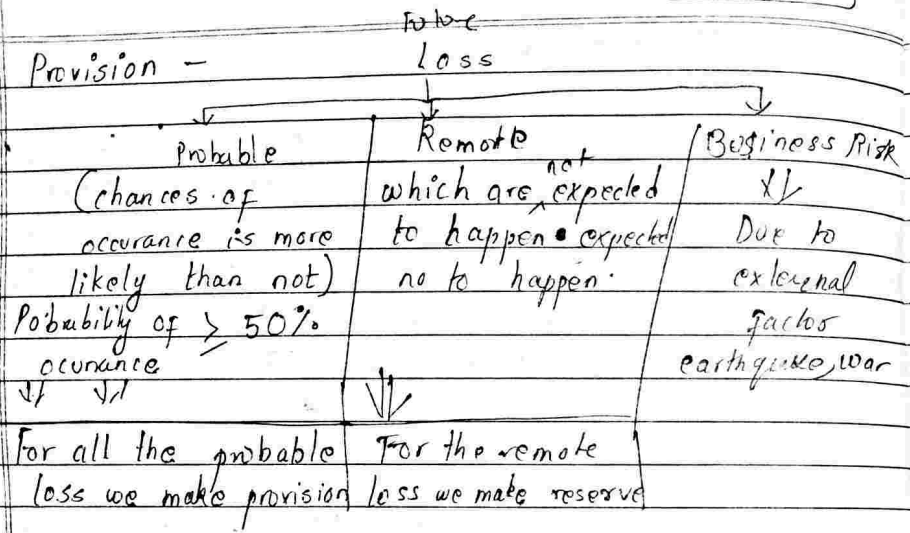 Future
Provision - Loss
Probable
(chances of
occurance is more
likely than not)
Pobability of ≥ 50%
ocurance
For all the probable
loss we make provision
Remote
which are not expected
to happen expected
no to happen.
For the remote
loss we make reserve
Business Risk
Due to
external
factor
earthquake, war